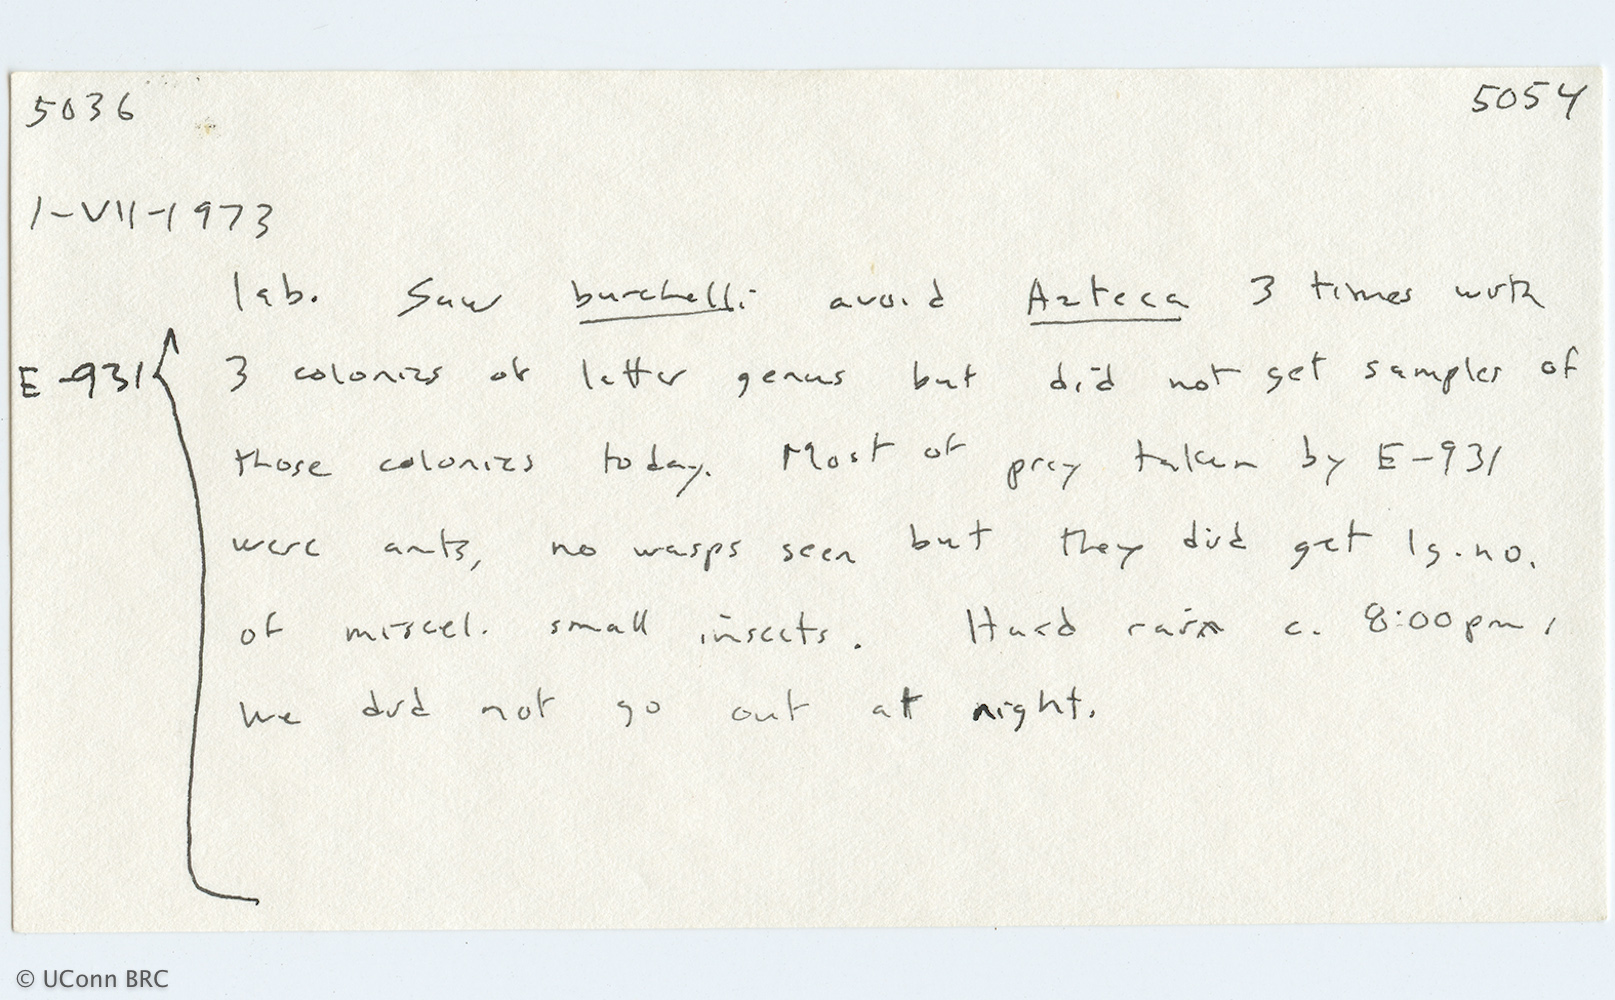 5036 5054
1-VII-1973
lab. Saw burchelli avoid Azteca 3 times with
E-931 3 colonies of latter genus but did not get samples of
those colonies today. Most of prey taken by E-931
were ants, no wasps seen but they did get lg. no.
of miscel. small insects. Hard rain c. 8:00pm,
we did not go out at night.
© UConn BRC